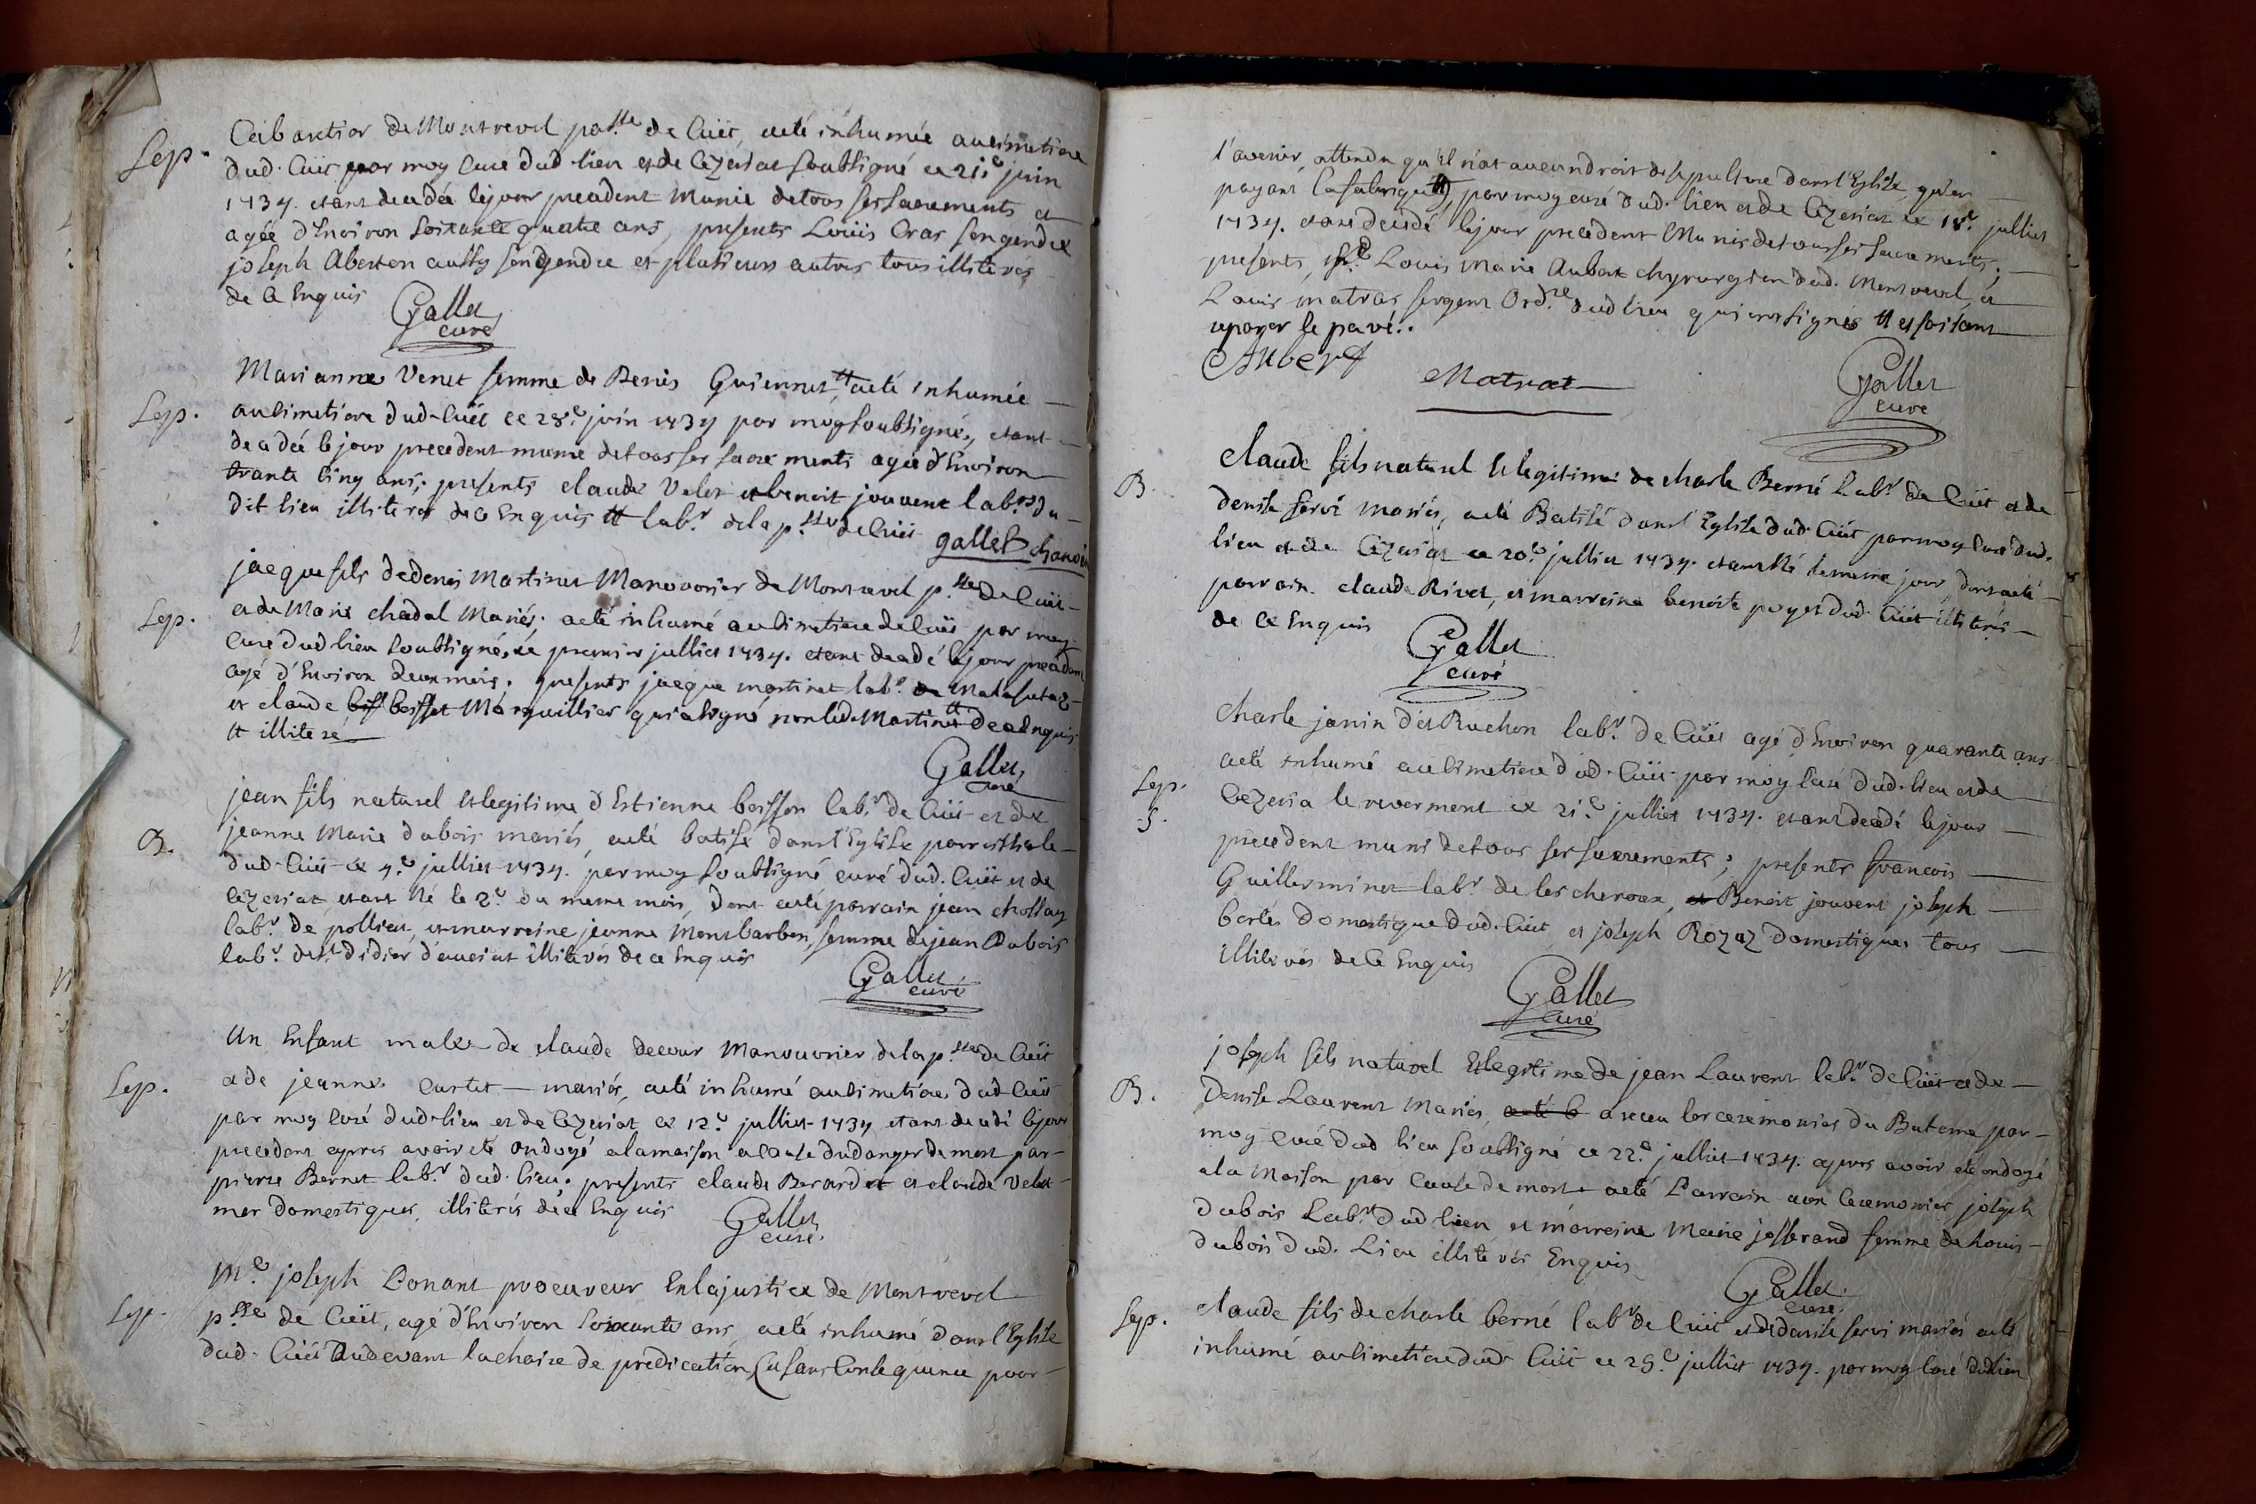 Cabaretier de Montrevel p.sse de Cuët, aeté inhumée au Cimetiere
Sep. dud. Cuët par moy Curé dud lieu et de Cezeriat soubsigné ce 21.e juin
1734. etant decedée le jour precedent Munie de tous ses Sacrements et
agée d'Environ Soixante quatre ans, presents Loüis Cras son gendre
joseph Aberton aussy son gendre et plusieurs autres tous illiterés
de ce Enquis
Gallet
curé
Marianne Venet femme de Denis Guiennet, # aeté inhumée
Sep. au Cimetiere dud. Cuët ce 28.e juin 1734 par moy soubsigné, etant
decedée le jour precedent munie de tous ses sacrements agée d'Environ
trante cinq ans; presents claude Velet et benoit jouvent lab.rs du
dit lieu illiterés de ce Enquis # lab.r de la p.sse de Cuët gallet
jacque fils de denis Martinet Manouvrier de Montrevel p.sse de Cuët
Sep. et de Marie chadal Mariés, aeté inhumé au Cimetiere de Cuët par moy
Curé dud lieu soubsigné, ce premier julliet 1734. etant decedé le jour precedent
agé d'Environ deux mois. presents jacque martinet lab.r de Malafretaz
et claude beisset Marguillier qui a signé non led. Martinet # de ce Enquis
# illiteré
Gallet
curé
jean fils naturel et legitime d'Estienne beisson lab.r de Cuët et de
B. jeanne Marie dubois mariés, aeté batisé dans l'Eglise parroissiale
dud. Cuët ce 4.e julliet 1734. par moy soubsigné curé dud. Cuët et de
Cezeriat etant Né le 2.e du meme mois, dont aeté parrain jean chossay
lab.r de polliat, et marreine jeanne Montbarbon femme de jean Dubois
lab.r de S.t didier d'auciat illiterés de ce Enquis
Gallet
curé
Un Enfant male de claude decour Manouvrier de la p.sse de Cuët
Sep. et de jeanne Curtet mariés, aeté inhumé au Cimetiere dud Cuët
par moy Curé dud lieu et de Cezeriat ce 12.e julliet 1734 etant decedé le jour
precedent apres avoir eté ondoyé a la maison a cause du danger de mort par
pierre Bernet lab.r dud. lieu, presents claude Berardet et claude Velet
mes domestiques, illiterés de ce Enquis
Gallet
curé
M.e joseph Ponant procureur En la justice de Montrevel
Sep. p.sse de Cuët, agé d'Environ Soixante ans, aeté inhumé dans l'Eglise
dud. Cuët Audevant la chaire de predication, Ce sans Consequence pour
l'avenir, attendu qu'il n'at aucun droit de sepulture dans l'Eglise, qu'en
payant la fabrique #, par moy curé dud. lieu et de Cezeriat ce 18.e julliet
1734. etant decedé le jour precedent Munis de tous ses sacrements;
presents, Louis Marie Aubert chyrurgien dud. Montrevel, et
Louis matrat sergent Ord.re dud lieu qui ont signés # et faisant
reparer le pavé.
Aubert
Matrat
Gallet
curé
claude fils naturel et legitime de charle Berné Lab.r de Cuët et de
B. denise servi mariés, aeté Batisé dans l'Eglise dud. Cuët par moy Curé dud.
lieu et de Cezeriat ce 20.e julliet 1734. etant Né le meme jour, dont aeté
parrain claude Rivet, et marreine benoite puget dud. Cuët illiterés
de ce Enquis
Gallet
curé
charle janin dit Ruchon lab.r de Cuët agé d'Environ quarante ans
Sep. aeté inhumé au Cimetiere dud. Cuët par moy Curé dud. lieu et de
.S. Cezeria le revermont ce 21.e julliet 1734. etant decedé le jour
precedent muni de tous ses sacrements; presents francois
Guillerminet lab.r de les cheroux, et Benoit jouvent joseph
bertet domestique dud. Cuët, et joseph Royaz domestiques tous
illiterés de Ce Enquis
Gallet
curé
joseph fils naturel et legitime de jean Laurent lab.r de Cuët et de
B. Denise Laurent Mariés, aeté b a receu les ceremonies du Bateme par
moy curé dud lieu soubsigné ce 22.e julliet 1734. apres avoir eté ondoyé
a la Maison par Cause de mort aeté Parrain aux Ceremonies joseph
dubois Lab.r dud lieu et marreine Marie josserand femme de Louis
dubois dud. Lieu illiterés Enquis
Gallet
curé
Sep. claude fils de charle berné lab.r de Cuët et de denise servi mariés aeté
inhumé au Cimetiere dud. Cuët ce 25.e julliet 1734. par moy Curé dud lieu